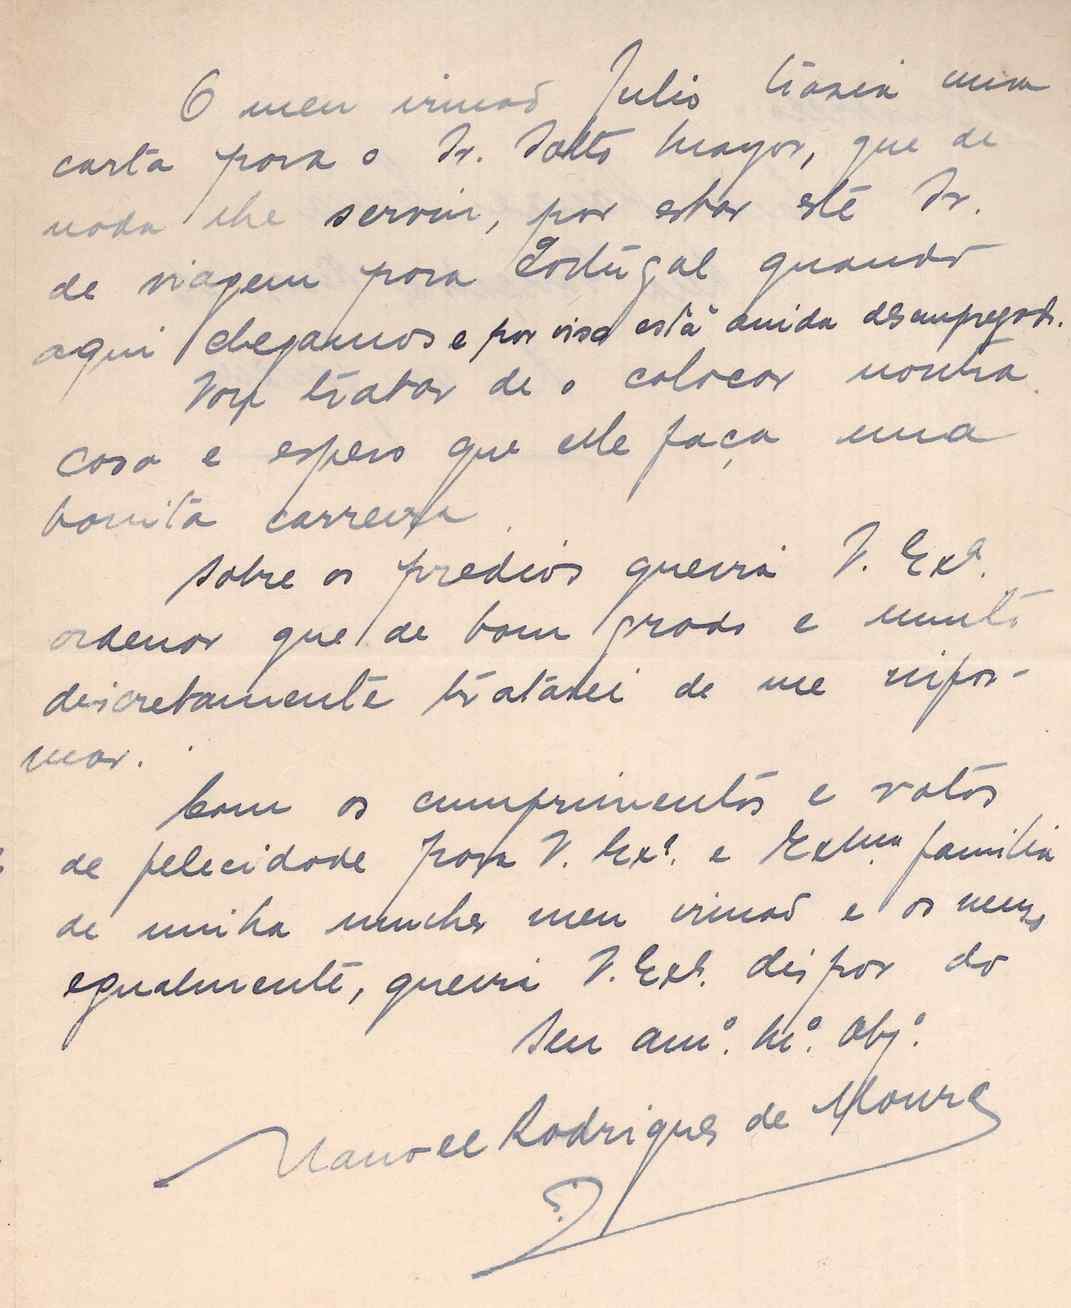 O meu irmão Julio trazia uma
carta para o Dr. Souto Mayor, que de
nada lhe serviu, por estar este Dr.
de viagem para Portugal quando
aqui chegamos e por isso está ainda desempregado.
Vou tratar de o colocar noutra
casa e espero que elle faça uma
bonita carreira.
Sobre os predios queira V. Exª.
ordenar que de bom grado e muito
discretamente tratarei de me infor-
mar.
Com os cumprimentos e votos
de felecidade para V. Exª. e Exma. familia
de minha mulher meu irmão e os meus
egualmente, queira V. Exª. dispor do
Seu amº. mº. Obgº.
Manoel Rodrigues de Moura